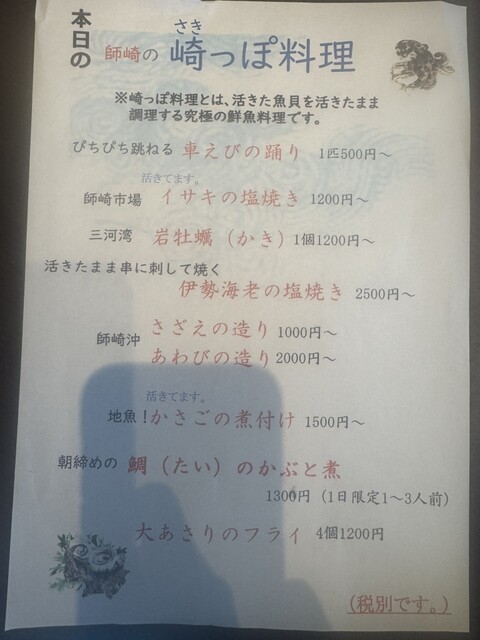 本日の
師崎の 崎っぽ料理
さき
※崎っぽ料理とは、活きた魚貝を活きたまま
調理する究極の鮮魚料理です。
ぴちぴち跳ねる 車えびの踊り 1匹500円～
活きてます。
師崎市場 イサキの塩焼き 1200円～
三河湾 岩牡蠣（かき）1個1200円～
活きたまま串に刺して焼く
伊勢海老の塩焼き 2500円～
師崎沖
さざえの造り 1000円～
あわびの造り 2000円～
活きてます。
地魚！かさごの煮付け 1500円～
朝締めの 鯛（たい）のかぶと煮
1300円（1日限定1～3人前）
大あさりのフライ 4個1200円
（税別です。）